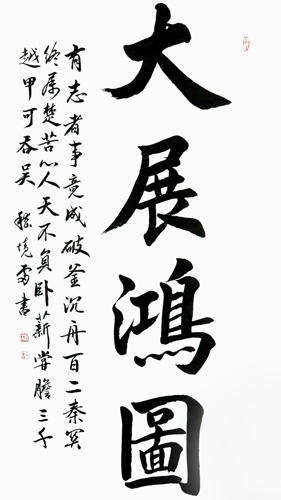 大展鴻圖
有志者事竟成破釜沉舟百二秦关
终属楚苦心人天不負卧薪嘗膽三千
越甲可吞吴 書